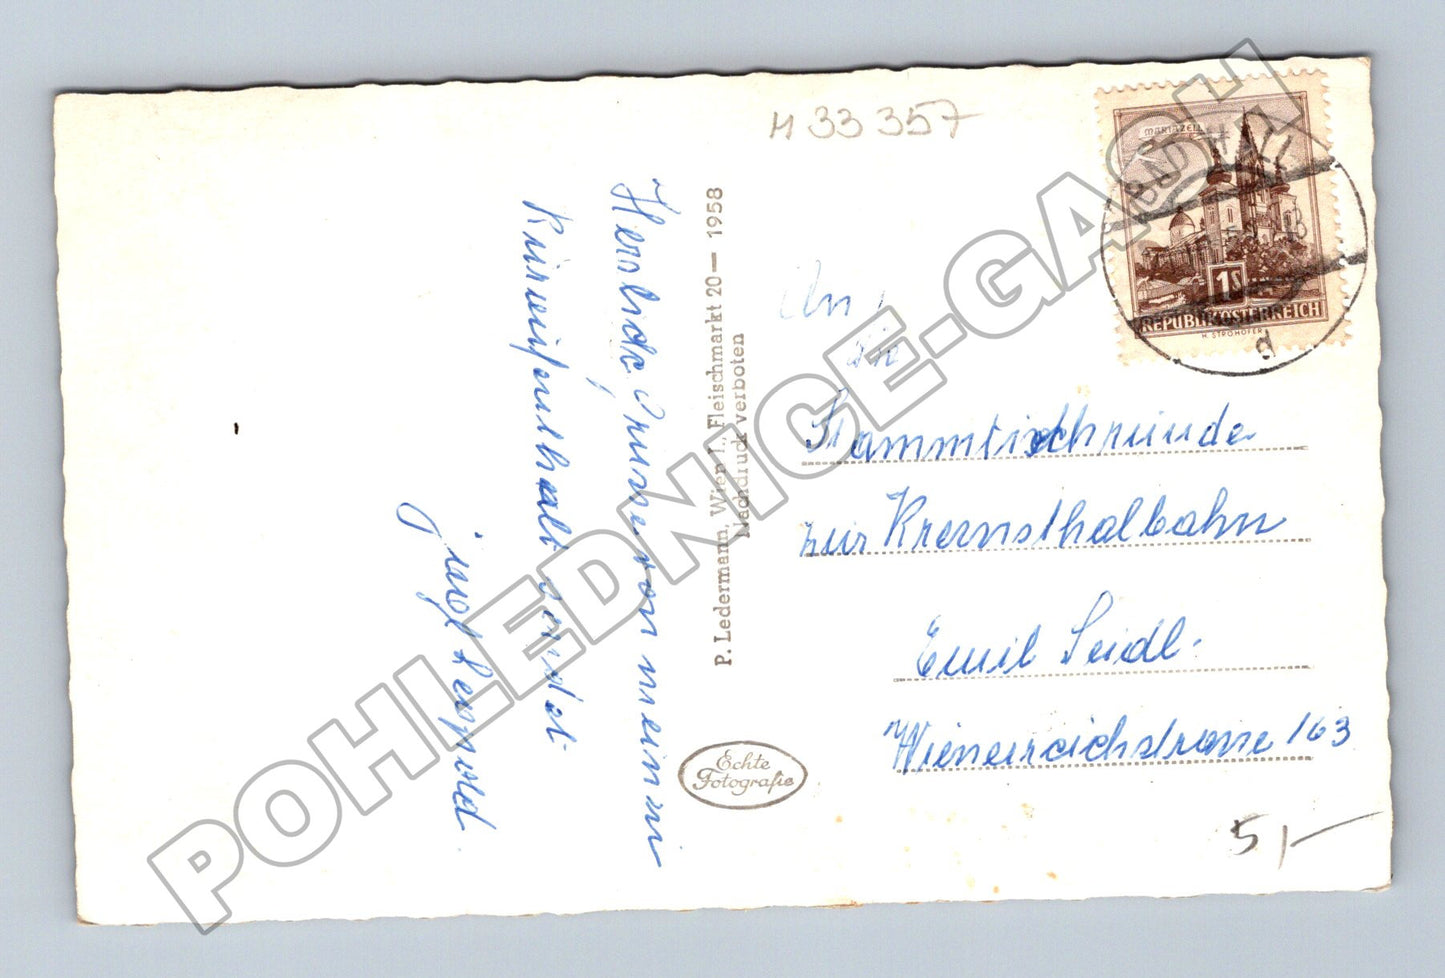 M 33 357
MARIAZELL
BAD HALL
1S
REPUBLIK ÖSTERREICH
H. STROHOFER
P. Ledermann, Wien I., Fleischmarkt 20 — 1958
Nachdruck verboten
Echte
Fotografie
Herzliche Grüsse von meinem
Kuraufenthalt sendet
Leopold
An
die
Stammtischrunde
zur Kremsthalbahn
Emil Seidl.
Wienerreichstrasse 163
5,-
POHLEDNICE-GASH